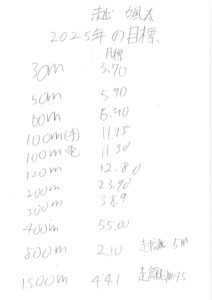 2025年の目標
目標
30m 3.70
50m 5.90
60m 6.90
100m(手) 11.15
100m電 11.30
120m 12.80
200m 23.90
300m 38.9
400m 55.00
800m 2.10 5m
1500m 4.41